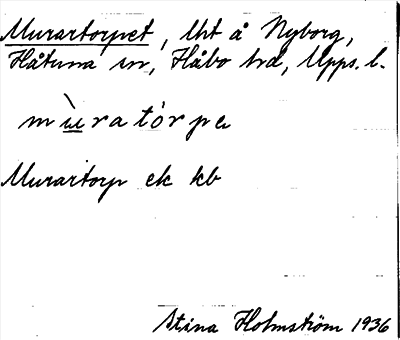 Murartorpet, lht å Nyborg,
Håtuna sn, Håbo hd, Upps. l.
mùratórpe
Murartorp ek kb
Stina Holmström 1936